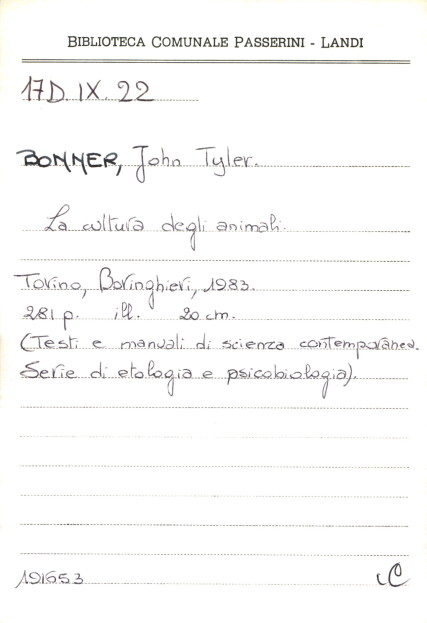 BIBLIOTECA COMUNALE PASSERINI - LANDI
17D.IX.22
BONNER, John Tyler.
La cultura degli animali.
Torino, Boringhieri, 1983.
281 p. ill. 20 cm.
(Testi e manuali di scienza contemporanea.
Serie di etologia e psicobiologia).
191653